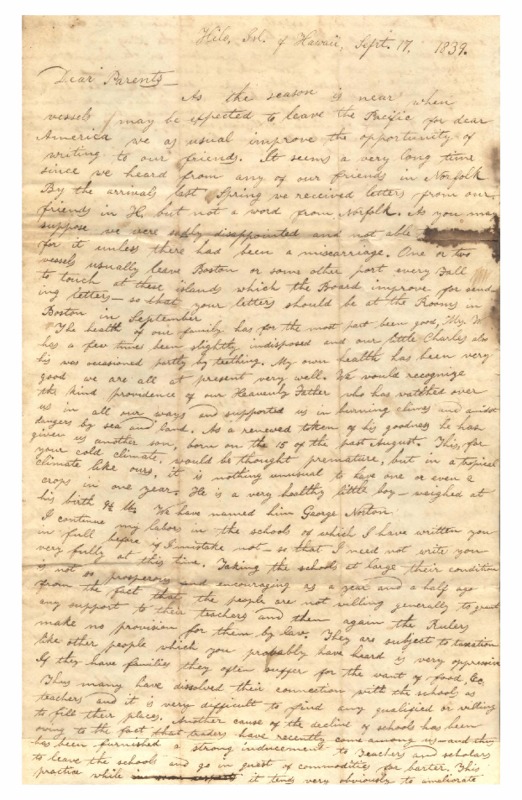 Hilo, Isl. of Hawaii, Sept. 17. 1839.
Dear Parents—
As the season is near when
vessels may be expected to leave the Pacific for dear
America we as usual improve the opportunity of
writing to our friends. It seems a very long time
since we heard from any of our friends in Norfolk
By the arrivals last Spring we received letters from our
friends in H. but not a word from Norfolk. As you may
suppose we were sadly disappointed and not able
for it unless there had been a miscarriage. One or two
vessels usually leave Boston or some other port every Fall
to touch at these islands which the Board improve for send-
ing letters— so that your letters should be at the Rooms in
Boston in September.
The health of our family has for the most part been good, Mrs. W.
has a few times been slightly indisposed and our little Charles also
his was occasioned partly by teething. My own health has been very
good we are all at present very well. We would recognize
the kind providence of our Heavenly Father who has watched over
us in all our ways and supported us in burning climes and amidst
dangers by sea and land. As a renewed token of his goodness he has
given us another son, born on the 15 of the past August. This, for
your cold climate, would be thought premature, but in a tropical
climate like ours, it is nothing unusual to have one or even 2
crops in one year. He is a very healthy little boy— weighed at
his birth 9½ lbs. We have named him George Norton.
I continue my labors in the schools of which I have written you
in full before if I mistake not— so that I need not write you
very fully at this time. Taking the schools at large their condition
is not so prosperous and encouraging as a year and a half ago
from the fact that the people are not willing generally to grant
any support to their teachers and then again the Rulers
make no provision for them by law. They are subject to taxation
like other people which you probably have heard is very oppressive
If they have families they often suffer for the want of food, &c.
Thus many have dissolved their connection with the school as
teachers and it is very difficult to find any qualified or willing
to fill their places. Another cause of the decline of schools has been
owing to the fact that traders have recently come among us— and thus
has been furnished a strong inducement to Teachers and scholars
to leave the schools and go in quest of commodities for barter. This
practice while it tends very obviously to ameliorate